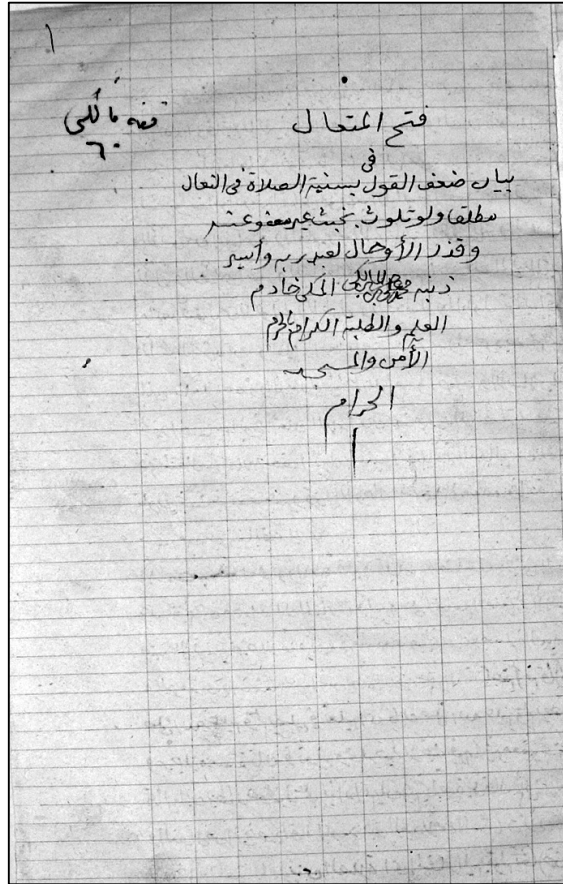 ١
فقه مالكي
٦٠
فتح المتعال
في
بيان ضعف القول بسنية الصلاة في النعال
مطلقا ولو تلوث بخبث غير معفو عنه
وقذر الأوحال لعبد ربه وأسير
ذنبه محمد علي المالكي المكي خادم
العلم والطلبة الكرام بالحرم
الأمن والمسجد
الحرام